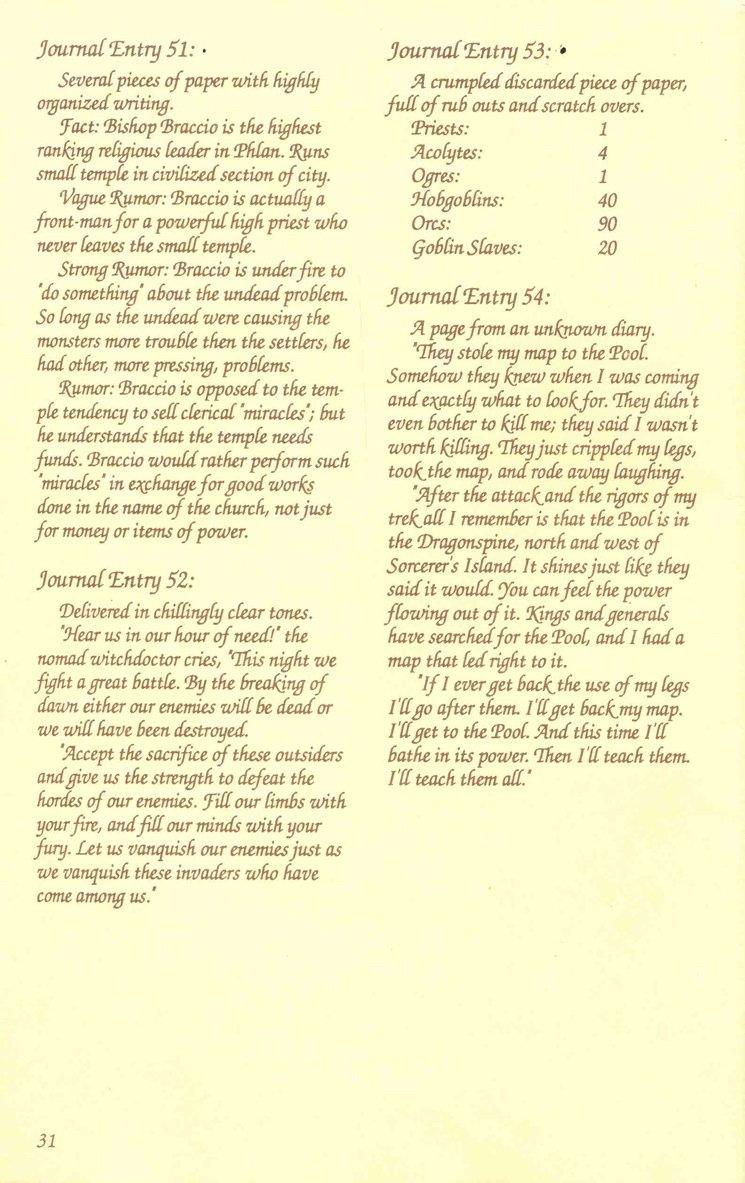 Journal Entry 51:
Several pieces of paper with highly
organized writing.
Fact: Bishop Braccio is the highest
ranking religious leader in Phlan. Runs
small temple in civilized section of city.
Vague Rumor: Braccio is actually a
front-man for a powerful high priest who
never leaves the small temple.
Strong Rumor: Braccio is under fire to
"do something" about the undead problem.
So long as the undead were causing the
monsters more trouble then the settlers, he
had other, more pressing, problems.
Rumor: Braccio is opposed to the tem-
ple tendency to sell clerical "miracles"; but
he understands that the temple needs
funds. Braccio would rather perform such
"miracles" in exchange for good works
done in the name of the church, not just
for money or items of power.
Journal Entry 52:
Delivered in chillingly clear tones.
"Hear us in our hour of need!" the
nomad witchdoctor cries, "This night we
fight a great battle. By the breaking of
dawn either our enemies will be dead or
we will have been destroyed.
"Accept the sacrifice of these outsiders
and give us the strength to defeat the
hordes of our enemies. Fill our limbs with
your fire, and fill our minds with your
fury. Let us vanquish our enemies just as
we vanquish these invaders who have
come among us."
Journal Entry 53:
A crumpled discarded piece of paper,
full of rub outs and scratch overs.
Priests: 1
Acolytes: 4
Ogres: 1
Hobgoblins: 40
Orcs: 90
Goblin Slaves: 20
Journal Entry 54:
A page from an unknown diary.
"They stole my map to the Pool.
Somehow they knew when I was coming
and exactly what to look for. They didn't
even bother to kill me; they said I wasn't
worth killing. They just crippled my legs,
took the map, and rode away laughing.
"After the attack and the rigors of my
trek all I remember is that the Pool is in
the Dragonspine, north and west of
Sorcerer's Island. It shines just like they
said it would. You can feel the power
flowing out of it. Kings and generals
have searched for the Pool, and I had a
map that led right to it.
"If I ever get back the use of my legs
I'll go after them. I'll get back my map.
I'll get to the Pool. And this time I'll
bathe in its power. Then I'll teach them.
I'll teach them all."
31